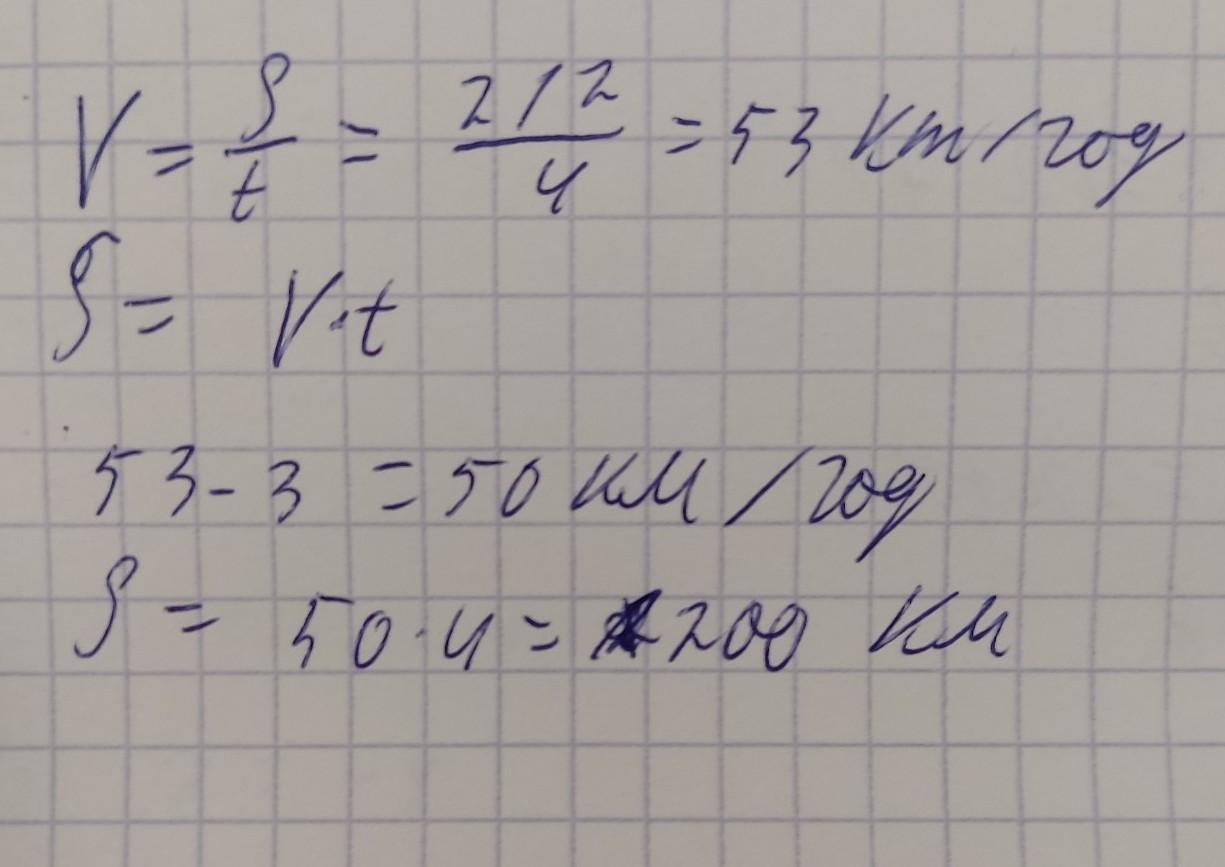 V = S/t = 212/4 = 53 км/год
S = V·t
53 - 3 = 50 км/год
S = 50·4 = 200 км